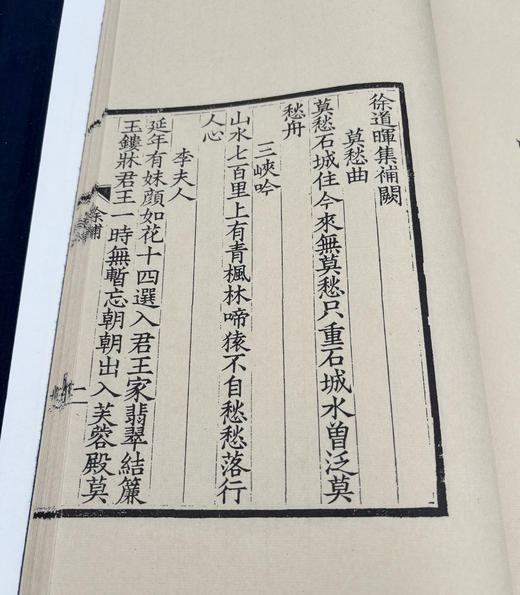 徐道暉集補闕
莫愁曲
莫愁石城住今來無莫愁只重石城水曾泛莫
愁舟
三峽吟
山水七百里上有青楓林啼猿不自愁愁落行
人心
李夫人
延年有妹顏如花十四選入君王家翡翠結簾
玉鏤牀君王一時無暫忘朝朝出入芙蓉殿莫
徐補
一